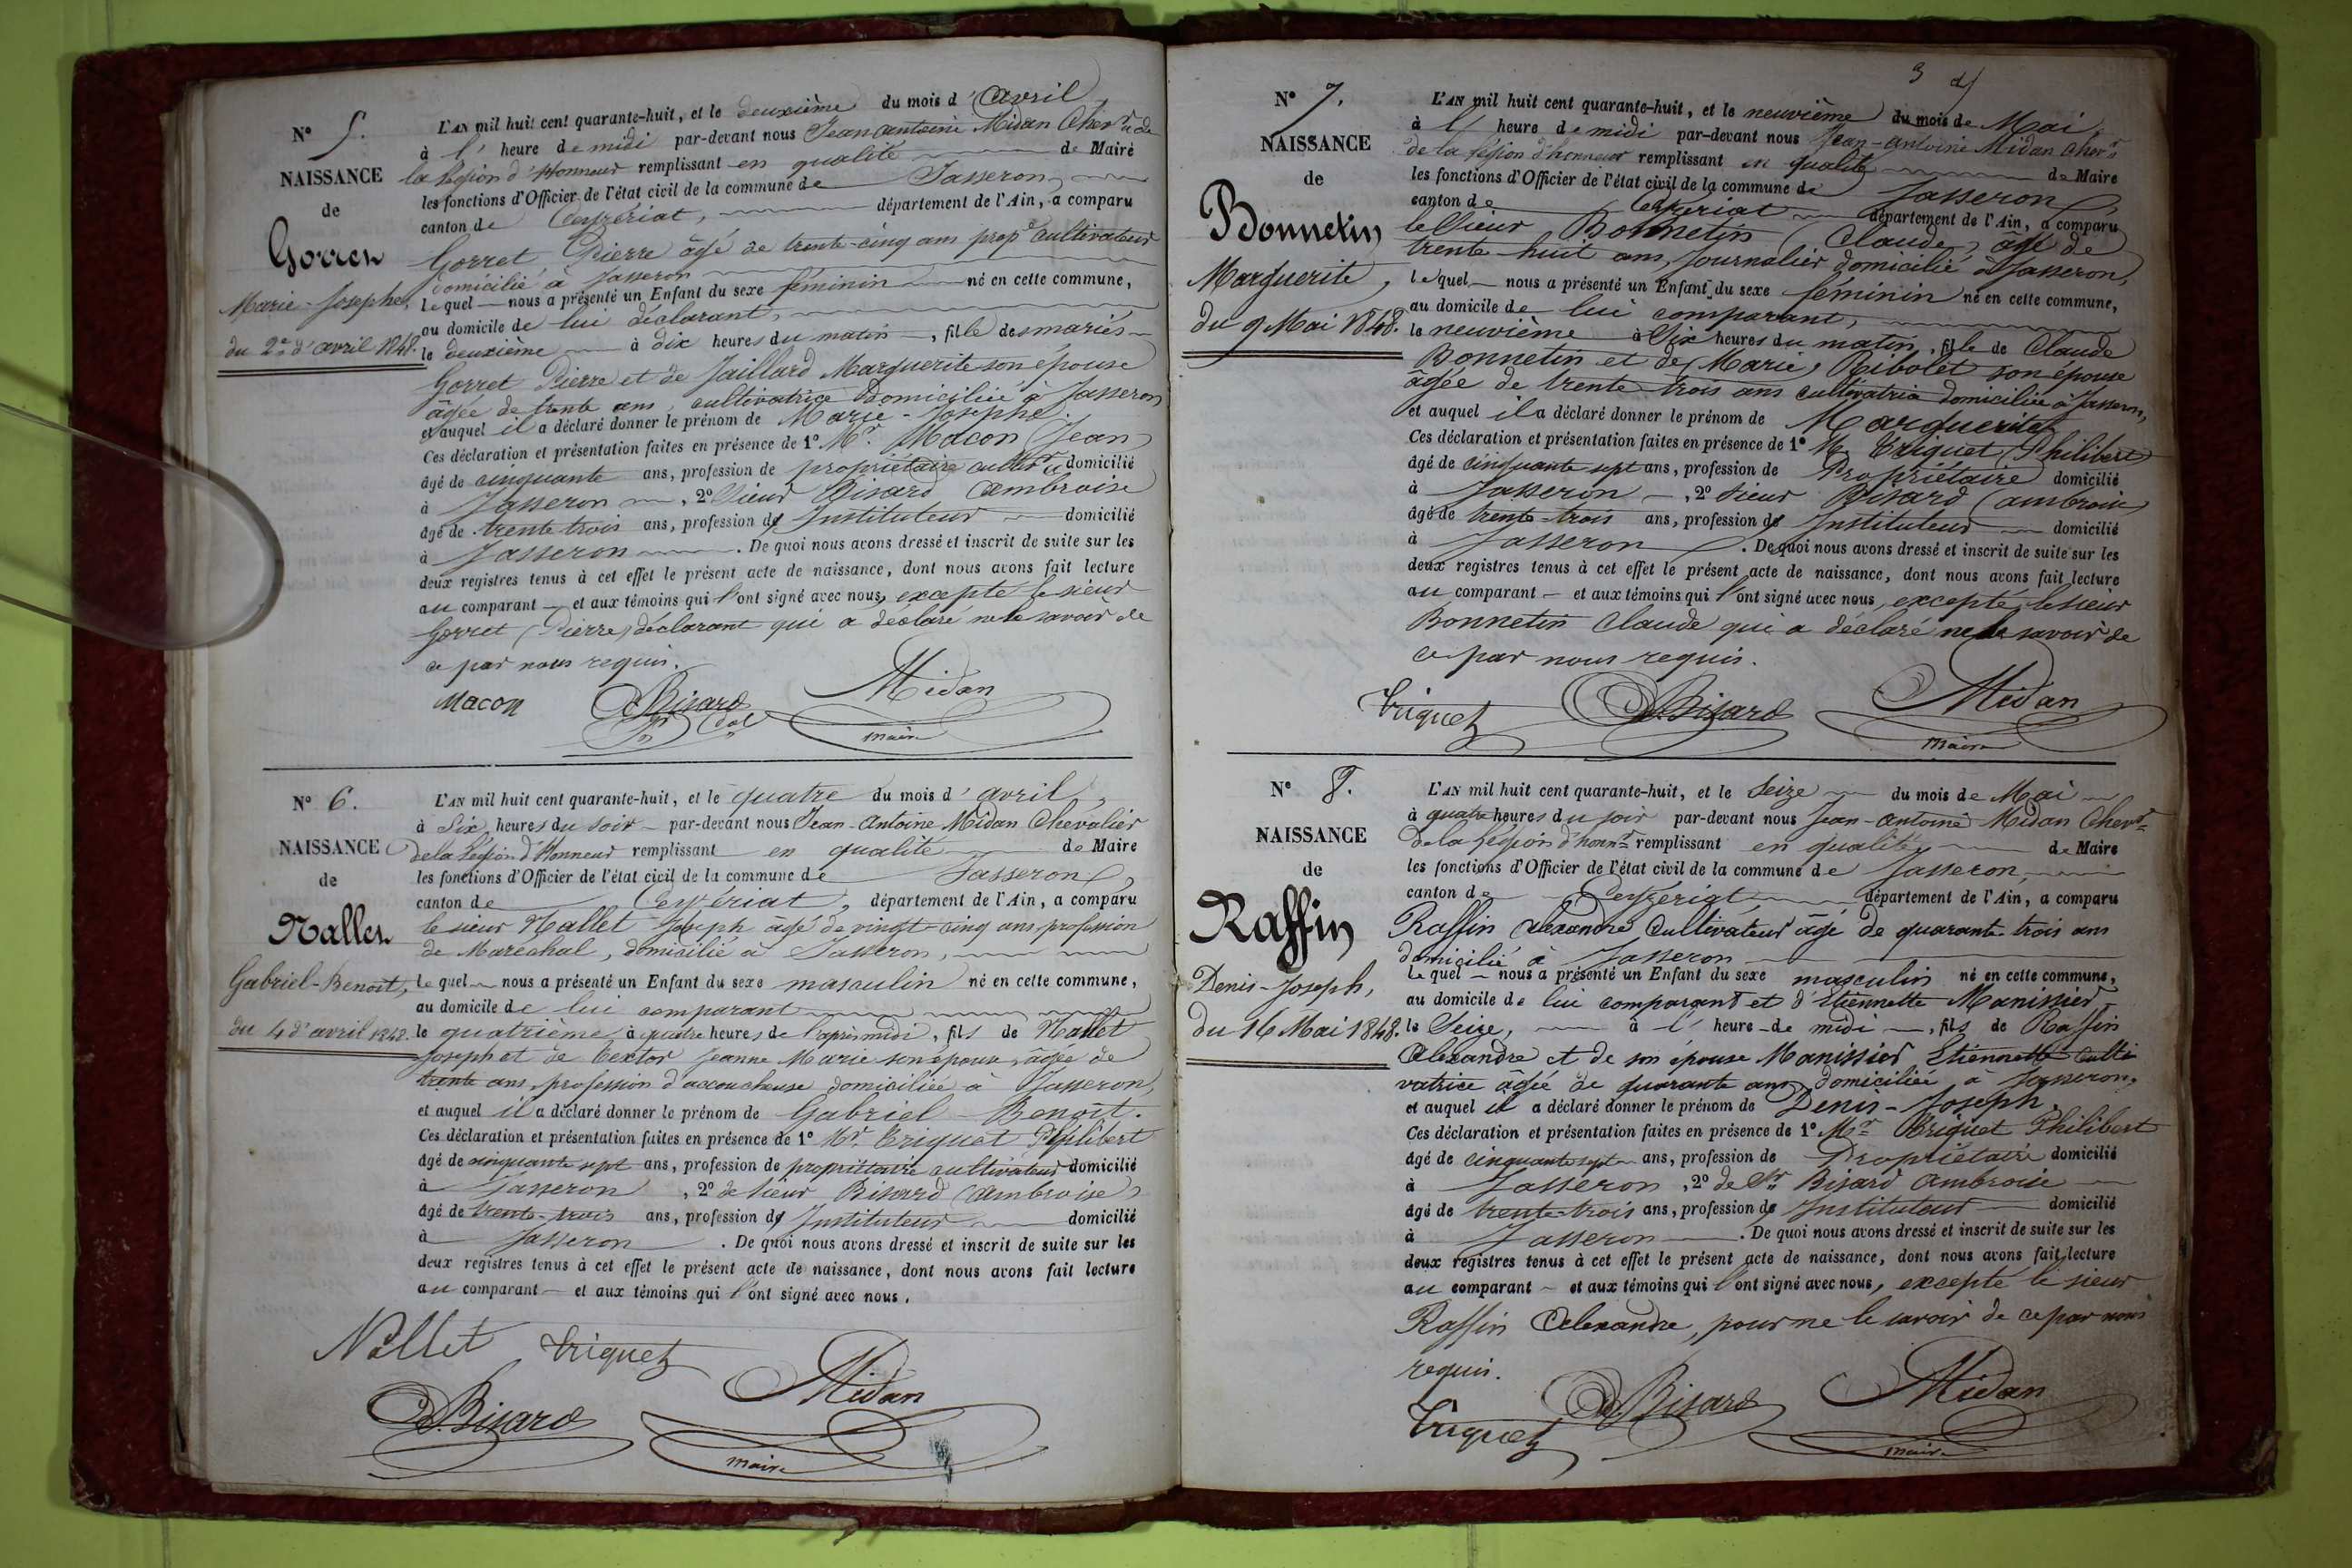 N° 5.
NAISSANCE
de
Gorret
Marie-Josephe,
du 2e d'avril 1848.
L'AN mil huit cent quarante-huit, et le deuxième du mois d'Avril,
à l' heure de midi par-devant nous Jean antoine Midan Chevr de
la Légion d'Honneur remplissant en qualité de Maire
les fonctions d'Officier de l'état civil de la commune de Jasseron,
canton de Ceyzériat, département de l'Ain, a comparu
Gorret Pierre âgé de trente-cinq ans prop.re cultivateur
domicilié à Jasseron
lequel nous a présenté un Enfant du sexe féminin né en cette commune,
au domicile de lui déclarant,
le deuxième à dix heures du matin, fille des mariés
Gorret Pierre et de Jaillard Marguerite son épouse
âgée de trente ans, cultivatrice domiciliée à Jasseron
et auquel il a déclaré donner le prénom de Marie-Josephe.
Ces déclaration et présentation faites en présence de 1° Mr. Macon Jean
âgé de cinquante ans, profession de propriétaire cultivr domicilié
à Jasseron, 2° Sieur Bisard Ambroise
âgé de trente trois ans, profession d' Instituteur domicilié
à Jasseron. De quoi nous avons dressé et inscrit de suite sur les
deux registres tenus à cet effet le présent acte de naissance, dont nous avons fait lecture
au comparant et aux témoins qui l'ont signé avec nous, excepté le sieur
Gorret (Pierre) déclarant qui a déclaré ne le savoir de
ce par nous requis.
Macon Bisard Midan
maire
N° 6.
NAISSANCE
de
Nallet
Gabriel-Benoît,
du 4 d'avril 1848.
L'AN mil huit cent quarante-huit, et le quatre du mois d'avril,
à Six heures du soir par-devant nous Jean-Antoine Midan Chevalier
de la Légion d'Honneur remplissant en qualité de Maire
les fonctions d'Officier de l'état civil de la commune de Jasseron,
canton de Ceyzériat, département de l'Ain, a comparu
le sieur Nallet Joseph âgé de vingt-cinq ans profession
de Maréchal, domicilié à Jasseron,
lequel nous a présenté un Enfant du sexe masculin né en cette commune,
au domicile de lui comparant
le quatrième à quatre heures de l'après midi, fils de Nallet
Joseph et de Textor Jeanne Marie son épouse, âgée de
trente ans, profession d'accoucheuse domiciliée à Jasseron,
et auquel il a déclaré donner le prénom de Gabriel Benoît.
Ces déclaration et présentation faites en présence de 1° Mr. Triquet Philibert
âgé de cinquante sept ans, profession de propriétaire cultivateur domicilié
à Jasseron, 2° de Sieur Bisard (Ambroise)
âgé de trente-trois ans, profession d' Instituteur domicilié
à Jasseron. De quoi nous avons dressé et inscrit de suite sur les
deux registres tenus à cet effet le présent acte de naissance, dont nous avons fait lecture
au comparant et aux témoins qui l'ont signé avec nous.
Nallet Triquet
Bisard Midan
maire
3
N° 7.
NAISSANCE
de
Bonnetin
Marguerite,
du 9 Mai 1848.
L'AN mil huit cent quarante-huit, et le neuvième du mois de Mai,
à l' heure de midi par-devant nous Jean-antoine Midan chevr
de la légion d'honneur remplissant en qualité de Maire
les fonctions d'Officier de l'état civil de la commune de Jasseron,
canton de Ceyzériat département de l'Ain, a comparu
le Sieur Bonnetin (Claude) âgé de
trente-huit ans, Journalier domicilié à Jasseron,
lequel nous a présenté un Enfant du sexe féminin né en cette commune,
au domicile de lui comparant,
le neuvième à Six heures du matin, fille de Claude
Bonnetin et de Marie Ribolet son épouse
âgée de trente trois ans cultivatrice domiciliée à Jasseron,
et auquel il a déclaré donner le prénom de Marguerite
Ces déclaration et présentation faites en présence de 1° Mr Triquet (Philibert)
âgé de cinquante sept ans, profession de Propriétaire domicilié
à Jasseron, 2° Sieur Bisard (ambroise)
âgé de trente-trois ans, profession d' Instituteur domicilié
à Jasseron. De quoi nous avons dressé et inscrit de suite sur les
deux registres tenus à cet effet le présent acte de naissance, dont nous avons fait lecture
au comparant et aux témoins qui l'ont signé avec nous, excepté le sieur
Bonnetin Claude qui a déclaré ne le savoir de
ce par nous requis.
Triquet Bisard Midan
maire
N° 8.
NAISSANCE
de
Raffin
Denis-Joseph,
du 16 Mai 1848.
L'AN mil huit cent quarante-huit, et le Seize du mois de Mai
à quatre heures du soir par-devant nous Jean-Antoine Midan Chevr
de la Légion d'honr remplissant en qualité de Maire
les fonctions d'Officier de l'état civil de la commune de Jasseron,
canton de Ceyzériat, département de l'Ain, a comparu
Raffin Alexandre Cultivateur âgé de quarante-trois ans
domicilié à Jasseron
lequel nous a présenté un Enfant du sexe masculin né en cette commune,
au domicile de lui comparant et d'Etiennette Manissier,
le Seize, à l' heure de midi, fils de Raffin
Alexandre et de son épouse Manissier Etiennette culti
vatrice âgée de quarante ans, domiciliée à Jasseron,
et auquel il a déclaré donner le prénom de Denis-Joseph.
Ces déclaration et présentation faites en présence de 1° Mr Triquet Philibert
âgé de cinquante sept ans, profession de Propriétaire domicilié
à Jasseron, 2° de Sr Bisard Ambroise
âgé de trente-trois ans, profession d' Instituteur domicilié
à Jasseron. De quoi nous avons dressé et inscrit de suite sur les
deux registres tenus à cet effet le présent acte de naissance, dont nous avons fait lecture
au comparant et aux témoins qui l'ont signé avec nous, excepté le sieur
Raffin Alexandre, pour ne le savoir de ce par nous
requis.
Triquet Bisard Midan
maire